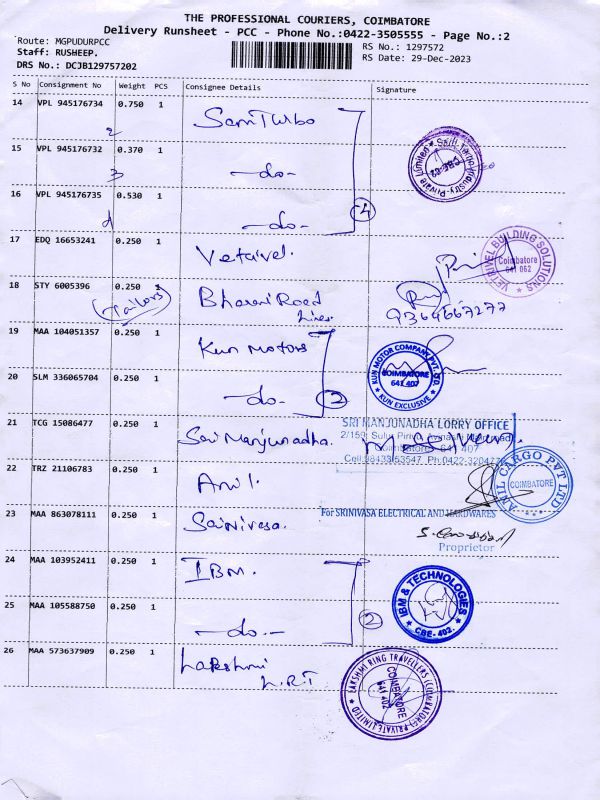 THE PROFESSIONAL COURIERS, COIMBATORE
Delivery Runsheet - PCC - Phone No.:0422-3505555 - Page No.:2
Route: MGPUDURPCC RS No.: 1297572
Staff: RUSHEEP. RS Date: 29-Dec-2023
DRS No.: DCJB129757202
S No Consignment No Weight PCS Consignee Details Signature
14 VPL 945176734 0.750 1 Sam Turbo
2
15 VPL 945176732 0.370 1 -do-
3
16 VPL 945176735 0.530 1 -do- 4
17 EDQ 16653241 0.250 1 Vetrivel.
VETRIVEL BUILDING SOLUTIONS
Coimbatore
641 062
18 STY 6005396 0.250 Bharani Road
(Tailors) Lines
9364667277
19 MAA 104051357 0.250 1 Kun Motors
KUN MOTOR COMPANY PVT. LTD.
COIMBATORE
641 407
KUN EXCLUSIVE
20 SLM 336065704 0.250 1 -do-
21 TCG 15086477 0.250 1 Sri Manjunadha.
SRI MANJUNADHA LORRY OFFICE
2/159,
641 407
Cell:98433 53547 Ph:0422-320
22 TRZ 21106783 0.250 1 Anil.
ANIL CARGO PVT LTD
COIMBATORE
23 MAA 863078111 0.250 1 Srinivasa.
For SRINIVASA ELECTRICAL AND HARDWARES
Proprietor
24 MAA 103952411 0.250 1 IBM.
IBM & TECHNOLOGIES
CBE-402.
25 MAA 105588750 0.250 1 -do- 2
26 MAA 573637909 0.250 1 Lakshmi
L.R.T
LAKSHMI RING TRAVELLERS (COIMBATORE) PRIVATE LIMITED
COIMBATORE
641 402